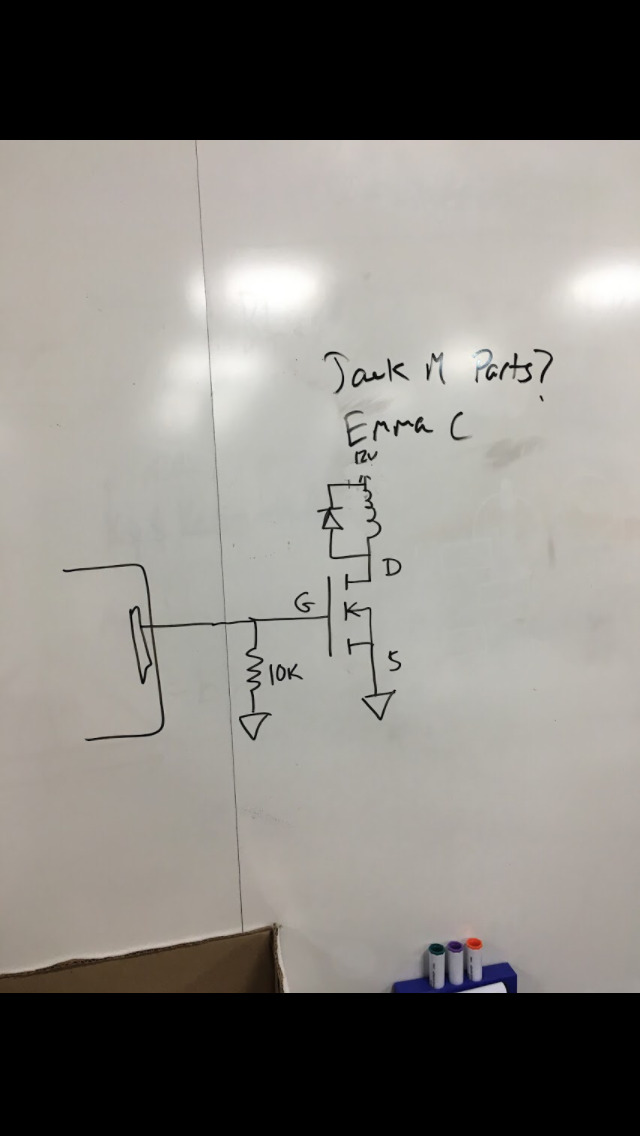 Jack M Parts?
Emma C
12V
D
G
S
10K